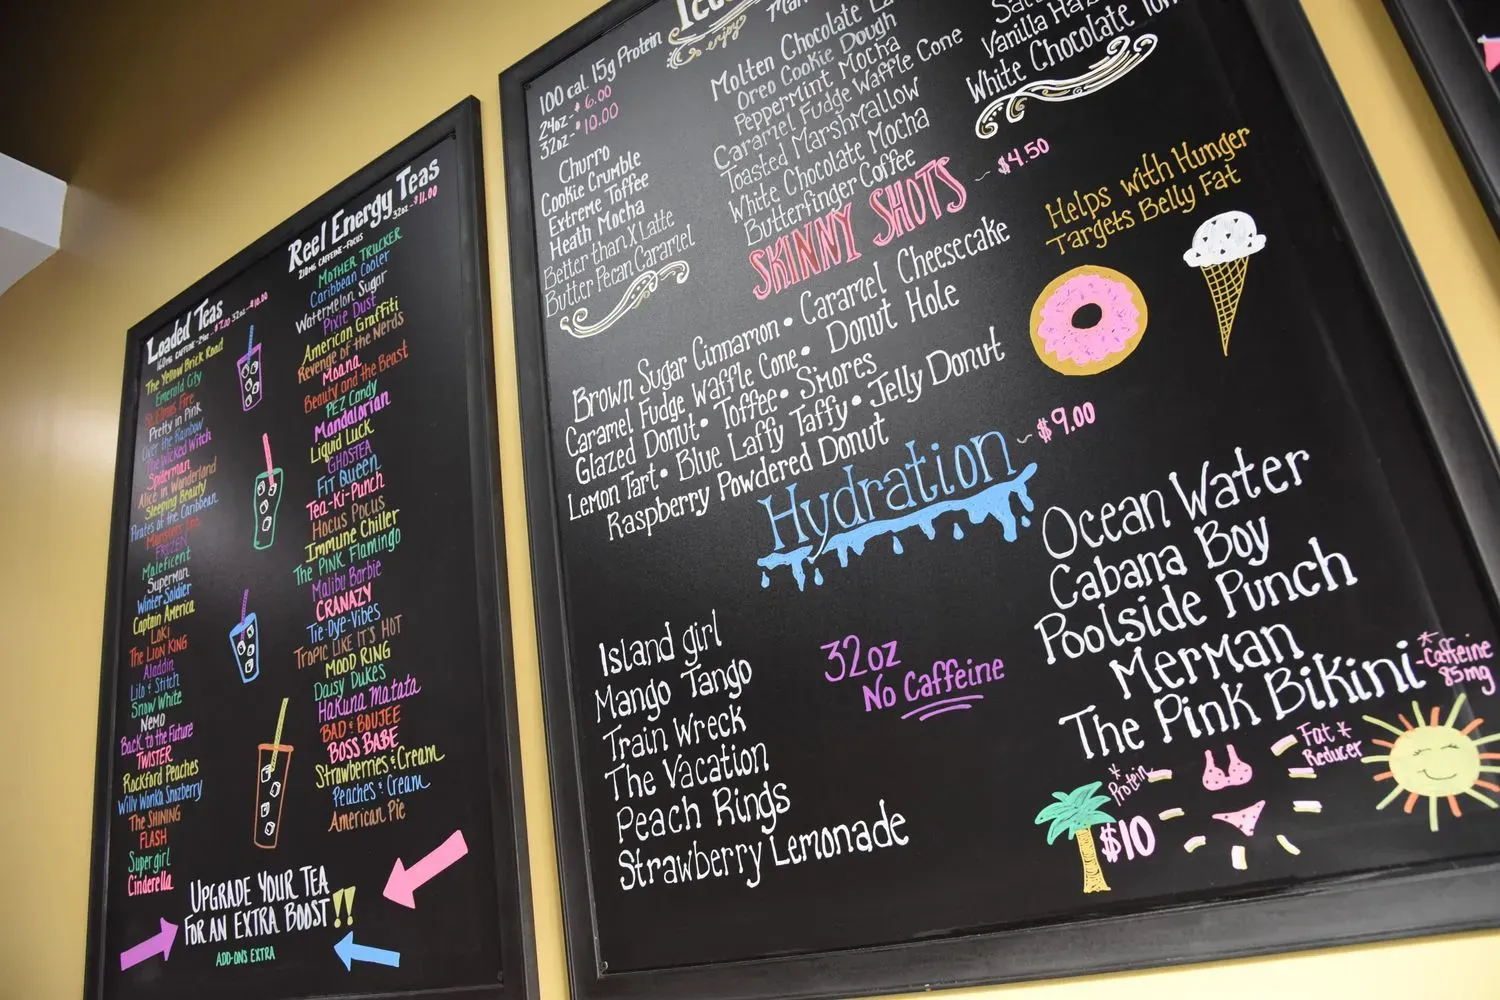 Loaded Teas
160MG CAFFEINE-24oz-$7.00 32oz-$10.00
The Yellow Brick Road
Emerald City
St. Elmos Fire
Pretty in Pink
Over the Rainbow
The Wicked Witch
Spiderman
Alice in Wonderland
Sleeping Beauty
Pirates of the Caribbean
Monsters Inc.
FROZEN
Maleficent
Superman
Winter Soldier
Captain America
LOKI
The LION KING
Aladdin
Lilo & Stitch
Snow White
NEMO
Back to the Future
TWISTER
Rockford Peaches
Willy Wonka Snozberry
The SHINING
FLASH
Supergirl
Cinderella
Reel Energy Teas
210MG CAFFEINE-FOCUS 32oz-$11.00
MOTHER TRUCKER
Caribbean Cooler
Watermelon Sugar
Pixie Dust
American Graffiti
Revenge of the Nerds
Moana
Beauty and the Beast
PEZ Candy
Mandalorian
Liquid Luck
GHOSTEA
FIT QUEEN
Tea-Ki-Punch
Hocus Pocus
Immune Chiller
The PINK Flamingo
Malibu Barbie
CRANAZY
Tie-Dye-Vibes
TROPIC LIKE IT'S HOT
MOOD RING
Daisy Dukes
Hakuna Matata
BAD & BOUJEE
BOSS BABE
Strawberries & Cream
Peaches & Cream
American Pie
UPGRADE YOUR TEA
FOR AN EXTRA BOOST!!
ADD-ONS EXTRA
enjoy
100 cal. 15g Protein
24oz-$6.00
32oz-$10.00
Churro
Cookie Crumble
Extreme Toffee
Heath Mocha
Better than X Latte
Butter Pecan Caramel
Molten Chocolate
Oreo Cookie Dough
Peppermint Mocha
Caramel Fudge Waffle Cone
Toasted Marshmallow
White Chocolate Mocha
Butterfinger Coffee
Vanilla
White Chocolate
SKINNY SHOTS ~ $4.50
Helps with Hunger
Targets Belly Fat
Brown Sugar Cinnamon • Caramel Cheesecake
Caramel Fudge Waffle Cone • Donut Hole
Glazed Donut • Toffee • S'mores
Lemon Tart • Blue Laffy Taffy • Jelly Donut
Raspberry Powdered Donut
Hydration ~ $9.00
Island girl
Mango Tango
Train Wreck
The Vacation
Peach Rings
Strawberry Lemonade
32oz
No Caffeine
Ocean Water
Cabana Boy
Poolside Punch
Merman
The Pink Bikini
*Caffeine
85mg
*Protein
$10
Fat *
Reducer